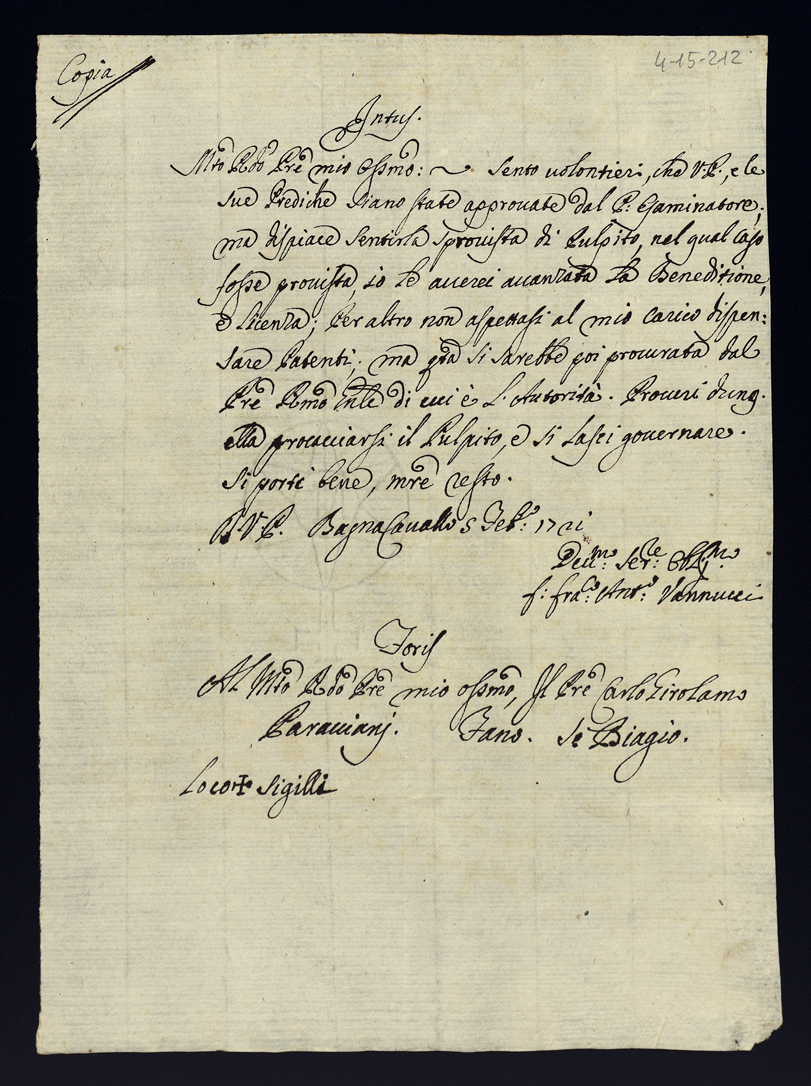 Copia
4-15-212
Intus.
Mto Rdo Pre mio ossmo: ~ Sento uolontieri, che V:P:, e le
sue Prediche siano state approuate dal P: Esaminatore;
ma dispiace sentirla sprouista di Pulpito, nel qual caso
fosse prouista, io le auerei auanzata la Beneditione,
e Licenza; Per altro non aspettasi al mio carico dispen:
sare Patenti; ma qta si sarebbe poi procurata dal
Pre Rmo di cui è L'Autorità. Procuri dunq.
ella procacciarsi il Pulpito, e si lasci gouernare.
Si porti bene, mre resto.
D.V.P. BagnaCauallo 5 Feb.o: 1721
Deu.mo: Ser.re: Obl.mo
f: fra.co Ant.o: Vannucci
Foris
Al Mto Rdo Pre mio ossmo, Il Pre Carlo Girolamo
Paracciani. Fano. Se Biagio.
Loco + Sigilli